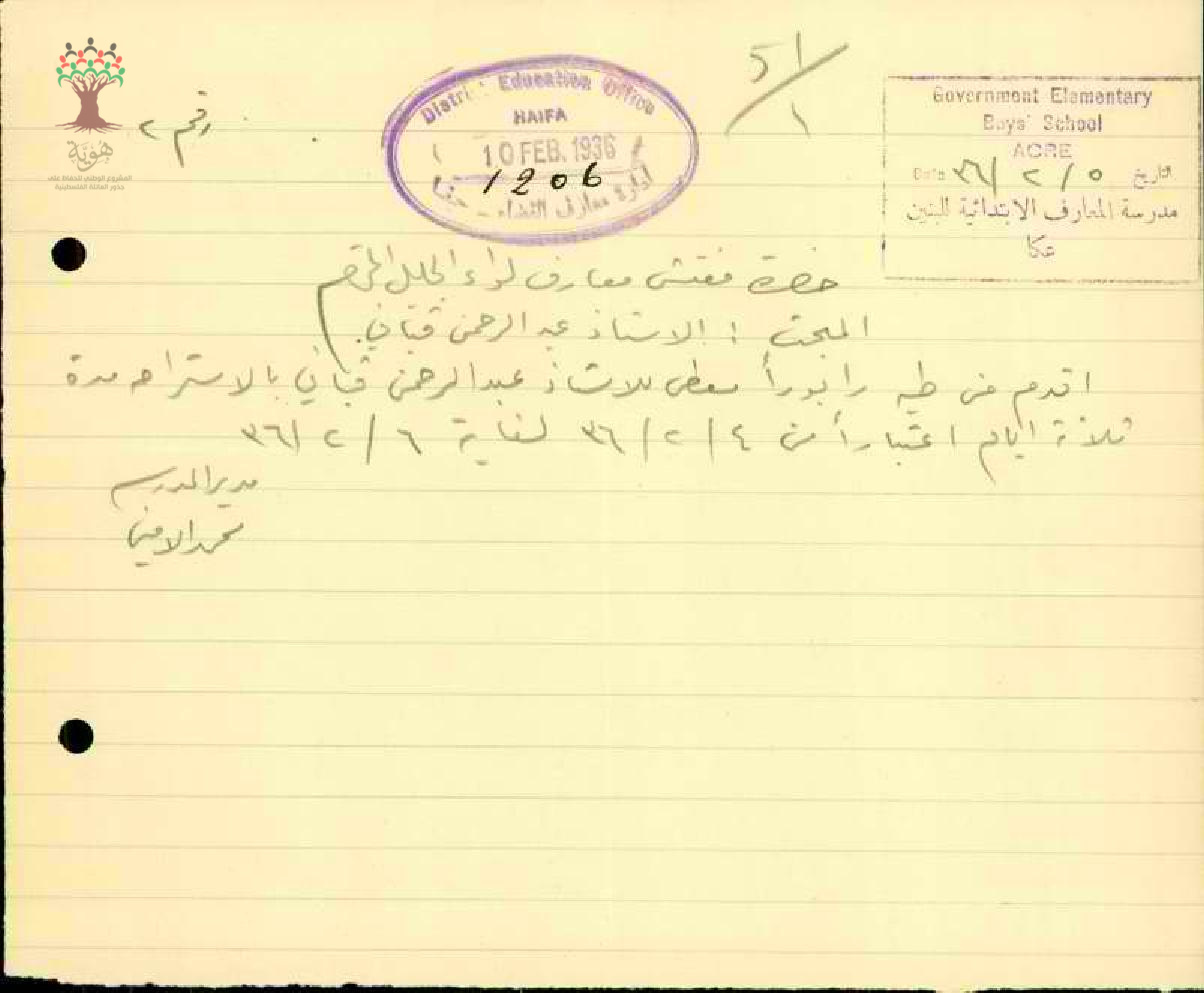 هوية
المشروع الوطني للحفاظ على
جذور العائلة الفلسطينية
رقم ٢
District Education Office
HAIFA
10 FEB. 1936
1206
ادارة معارف القضاء - حيفا
51/1
Government Elementary
Boys' School
ACRE
Date ٣٦/٢/٥ تاريخ
مدرسة المعارف الابتدائية للبنين
عكا
حضرة مفتش معارف لواء الجليل المحترم
المبحث : الاستاذ عبد الرحمن قباني.
اقدم في طيه رابوراً معطى للاستاذ عبد الرحمن قباني بالاستراحه مدة
ثلاثة ايام اعتباراً من ٣٦/٢/٤ لغاية ٣٦/٢/٦
مدير المدرسه
محمد الامين